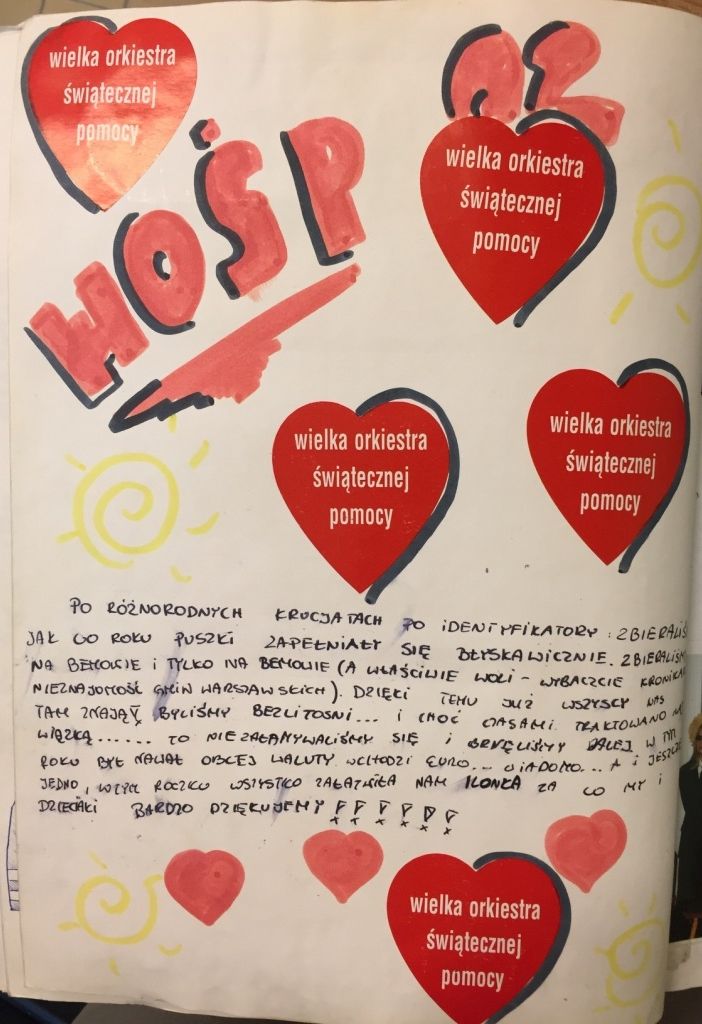 wielka orkiestra
świątecznej
pomocy
WOŚP
02
wielka orkiestra
świątecznej
pomocy
wielka orkiestra
świątecznej
pomocy
wielka orkiestra
świątecznej
pomocy
PO RÓŻNORODNYCH KRUCJATACH PO IDENTYFIKATORY: ZBIERALIŚ
JAK CO ROKU PUSZKI ZAPEŁNIAŁY SIĘ BŁYSKAWICZNIE. ZBIERALIŚM
NA BEMOWIE I TYLKO NA BEMOWIE (A WŁAŚCIWIE WOLI - WYBACZCIE KRONIKAR
NIEZNAJOMOŚĆ GMIN WARSZAWSKICH). DZIĘKI TEMU JUŻ WSZYSCY NAS
TAM ZNAJĄ. BYLIŚMY BEZLITOSNI... I CHOĆ CZASAMI TRAKTOWANO NA
WIĄZKĄ...... TO NIE ZAŁAMYWALIŚMY SIĘ I DALEJ W TYM
ROKU BYŁ NAWAŁ OBCEJ WALUTY. WCHODZI EURO... WIADOMO... A I JESZCZE
JEDNO, W TYM ROCZKU WSZYSTKO ZAŁATWIŁA NAM ILONKA ZA CO MY I
DZIECIAKI BARDZO DZIĘKUJEMY !!!!!!
wielka orkiestra
świątecznej
pomocy